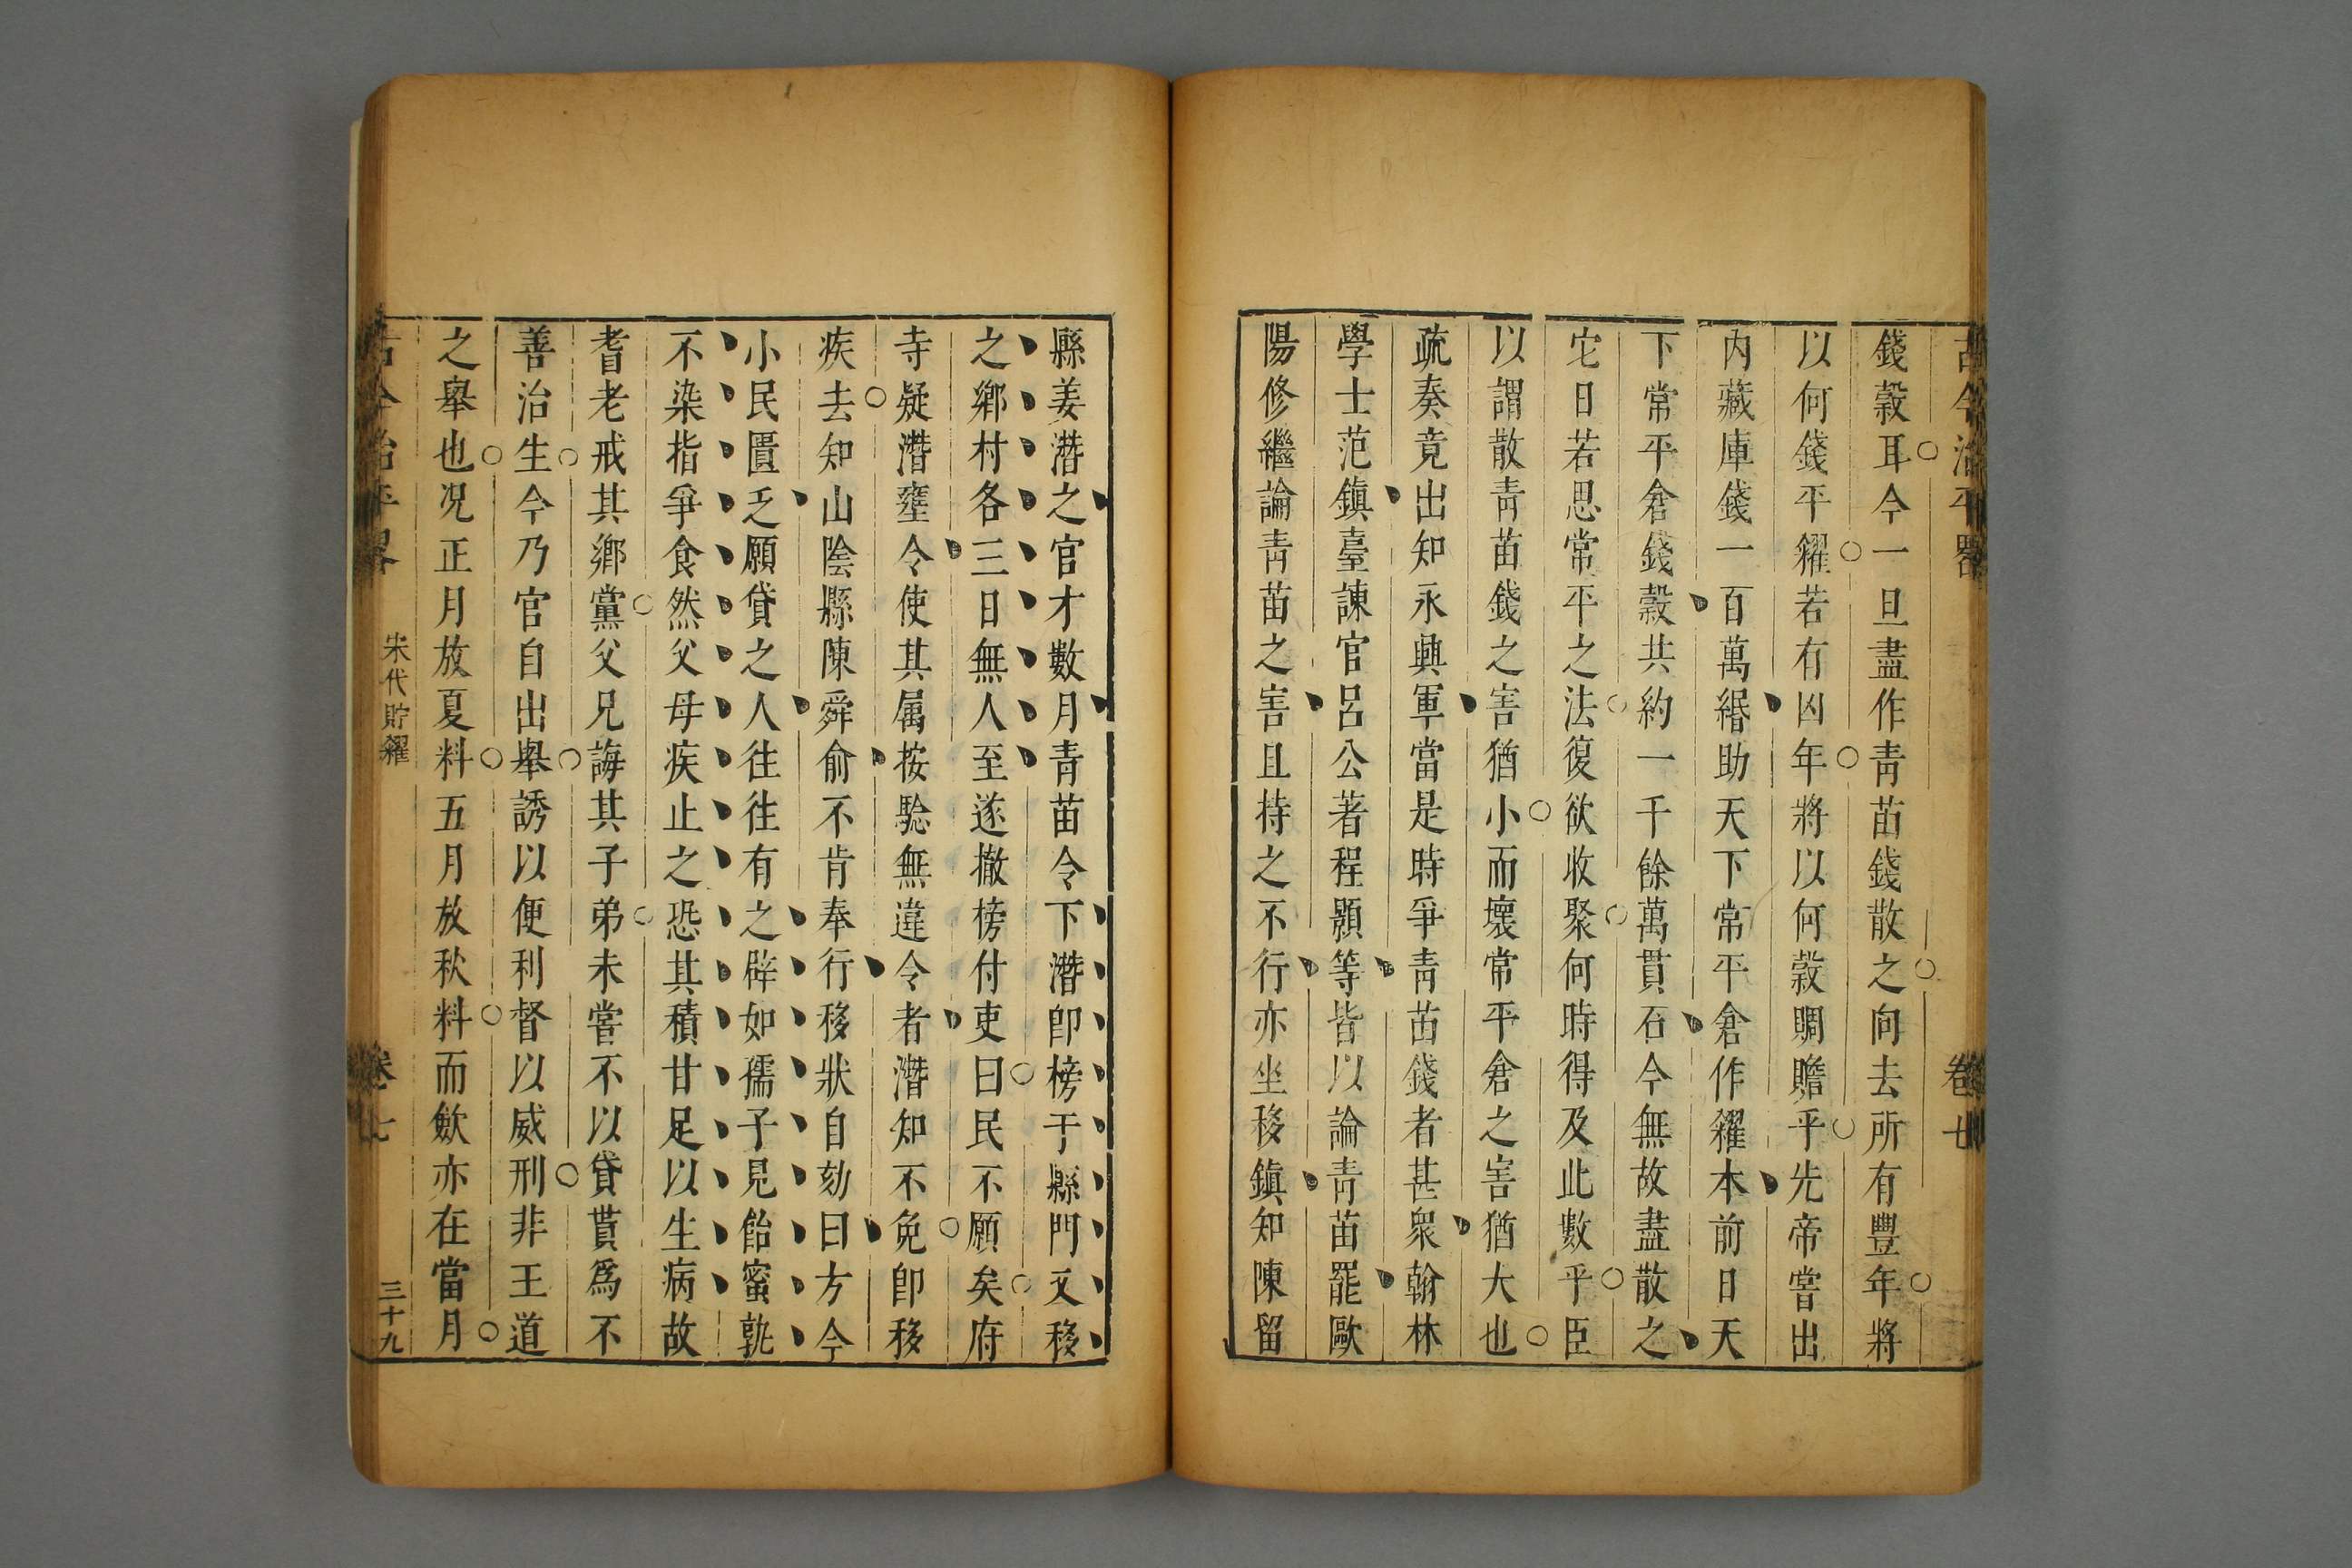 古今治平畧
卷七
錢穀耳今一旦盡作靑苗錢散之向去所有豐年將
以何錢平糴若有凶年將以何穀賙贍乎先帝嘗出
内藏庫錢一百萬緡助天下常平倉作糴本前日天
下常平倉錢穀共約一千餘萬貫石今無故盡散之
它日若思常平之法復欲收聚何時得及此數乎臣
以謂散靑苗錢之害猶小而壞常平倉之害猶大也
疏奏竟出知永興軍當是時爭靑苗錢者甚衆翰林
學士范鎮臺諫官呂公著程顥等皆以論靑苗罷歐
陽修繼論靑苗之害且持之不行亦坐移鎮知陳留
縣姜潛之官才數月靑苗令下潛卽榜于縣門又移
之鄉村各三日無人至遂撤榜付吏曰民不願矣府
寺疑潛壅令使其属按騐無違令者潛知不免卽移
疾去知山陰縣陳舜俞不肯奉行移狀自劾曰方今
小民匱乏願貸之人往往有之辟如孺子見飴蜜孰
不染指爭食然父母疾止之恐其積甘足以生病故
耆老戒其鄉黨父兄誨其子弟未嘗不以貸貰爲不
善治生今乃官自出舉誘以便利督以威刑非王道
之舉也况正月放夏料五月放秋料而斂亦在當月
古今治平畧
宋代貯糴
卷七
三十九